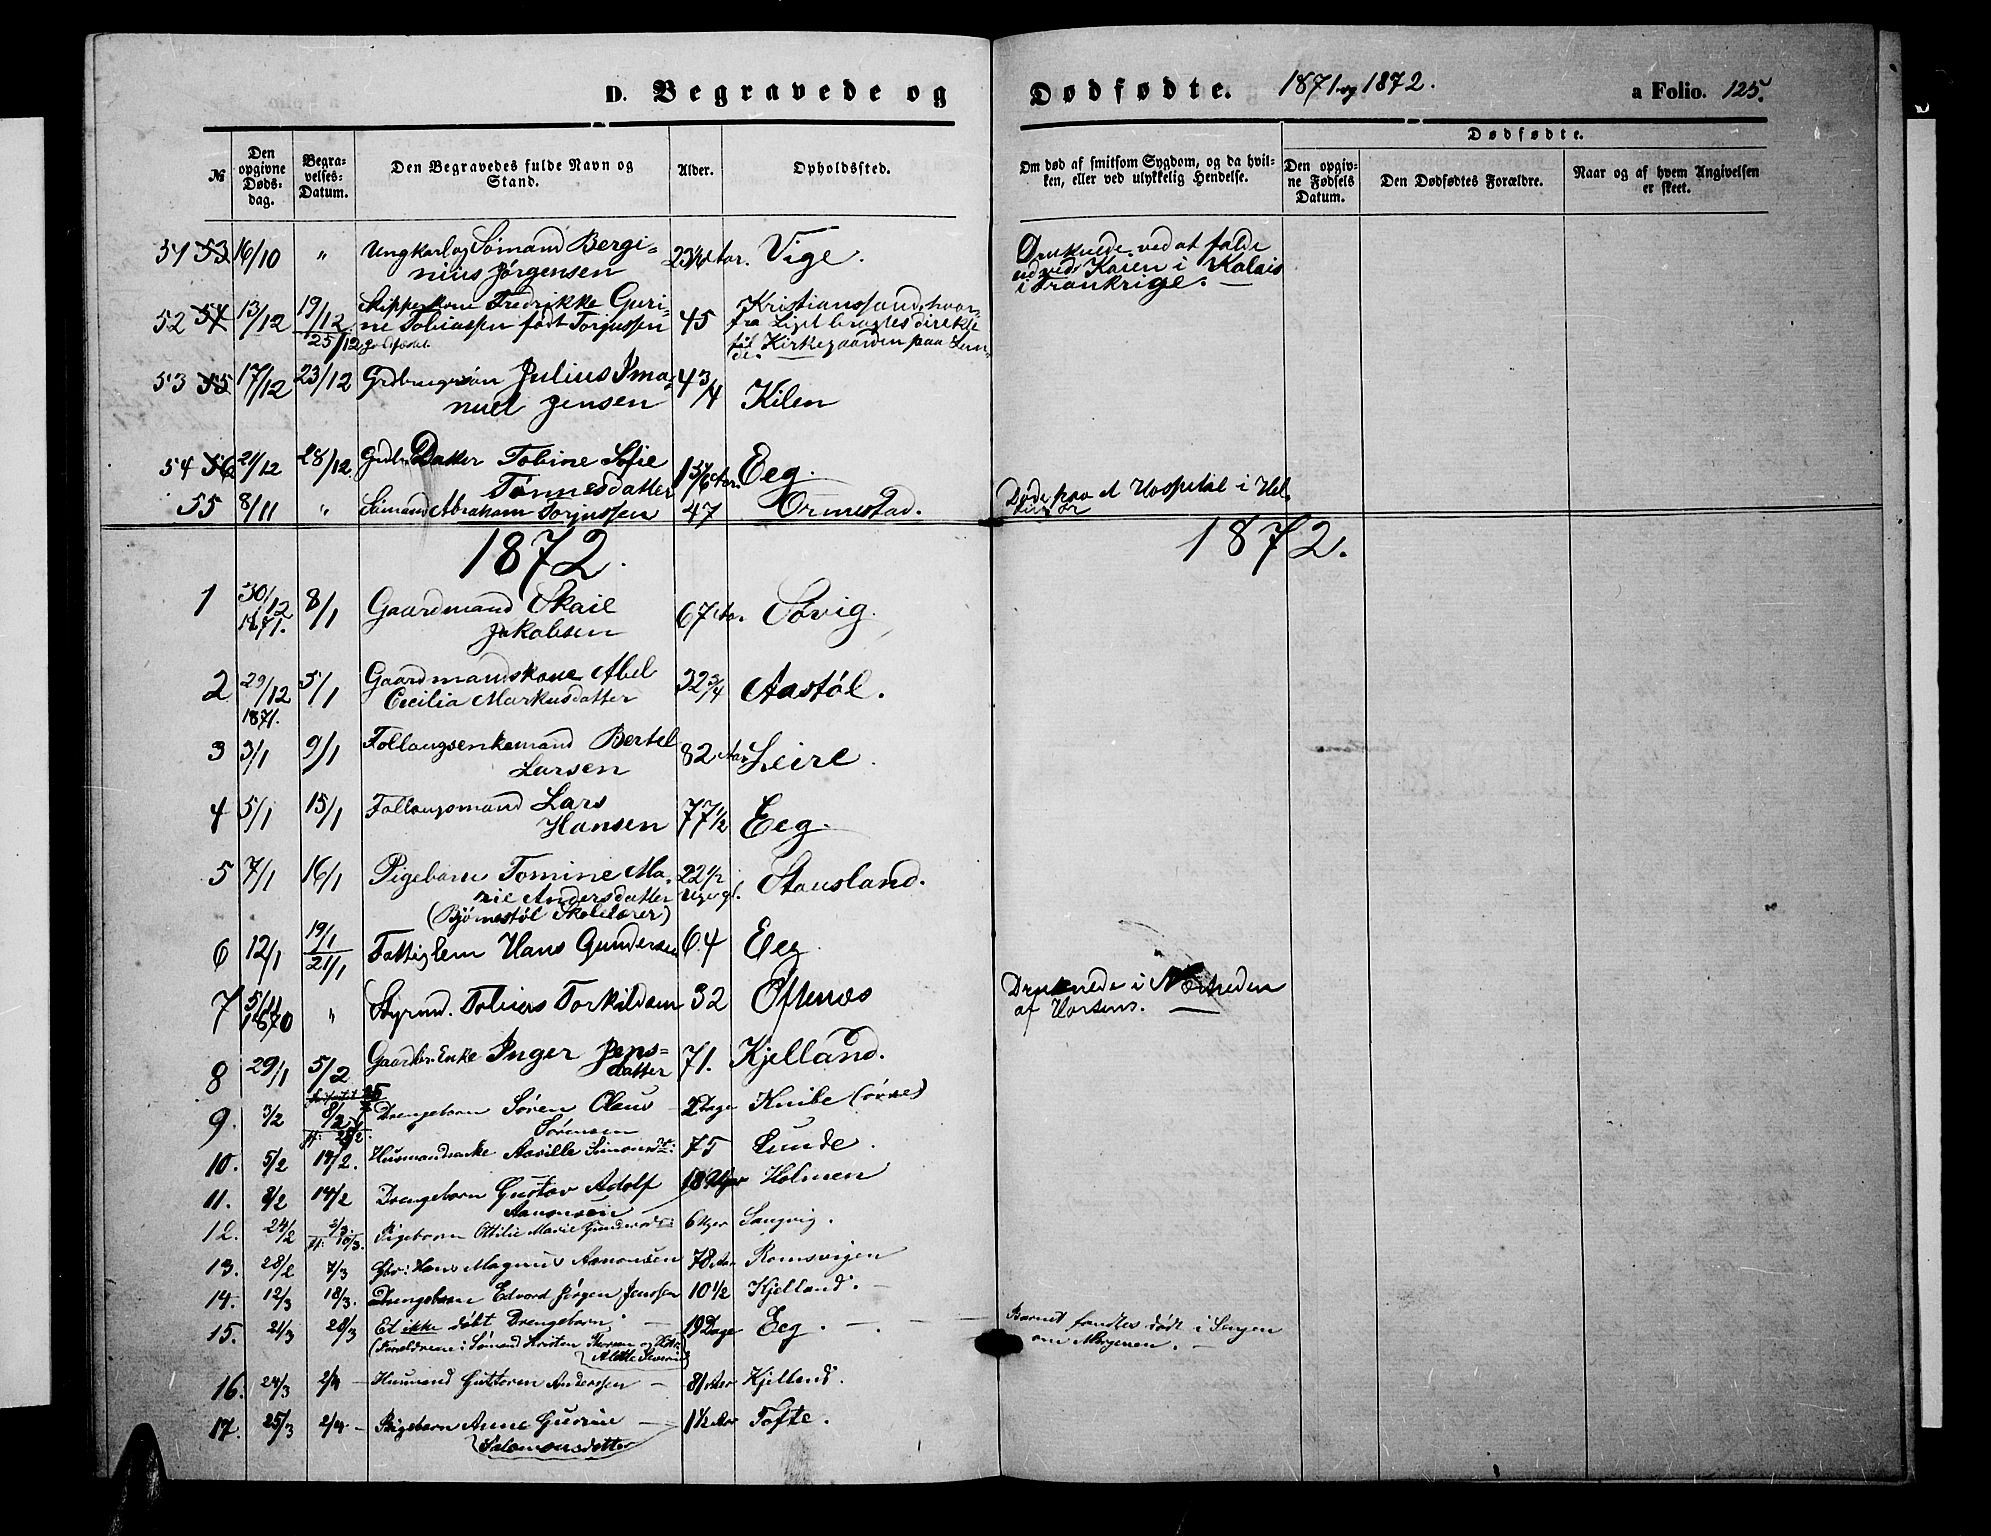 D. Begravede og
Dødfødte. 1871 og 1872.
a Folio. 125.
№
Den opgivne Døds-dag.
Begra-velses-Datum.
Den Begravedes fulde Navn og Stand.
Alder.
Opholdssted.
Om død af smitsom Sygdom, og da hvil-
ken, eller ved ulykkelig Hendelse.
Dødfødte.
Den opgiv-ne Fødsels Datum.
Den Dødfødtes Forældre.
Naar og af hvem Angivelsen er skeet.
51 53 16/10 " Ungkarl og Sømand Bergi-
nius Jørgensen Aar. Vige.
Druknede ved at falde
i Kalais
i Frankrige. —
52 54 13/12 19/12 25/12 Skipperkone Fredrikke Guri-
ne Tobiassen født Torjussen 45 Kristianssand, hvor-
fra Liget bragtes direkte
til Kirkegaarden paa
53 55 17/12 23/12 Julius Ima-
nuel Jensen 4 3/4 Kilen
54 56 21/12 28/12 Datter Tobine Sofie
Tønnesdatter Aar. Eeg.
55 8/11 " Sømand Abraham Torjussen 47 Ormestad.
Døde paa et Hospital i
1872.
1872.
1 30/12 1871. 8/1 Gaardmand Skaie
Jakobsen 67 Aar. Søvig.
2 29/12 1871. 5/1 Gaardmandskone Abel
Cecilia Markusdatter 32 3/4 Aastøl.
3 3/1 9/1 Follaugsenkemand Bertel
Larsen 82 Aar Leire.
4 5/1 15/1 Follaugsmand Lars
Hansen 77 1/2 Eeg.
5 7/1 16/1 Pigebarn Tomine Ma-
rie Andersdatter
(Bjørnestøl Skolelærer) 22 1/2 Uger gl. Stausland.
6 12/1 19/1 21/1 Fattiglem Hans Gundersen 64 Eeg
7 5/11 1870 " Styrmd. Tobias Torkildsen 32 Oftenæs
Druknede i Nærheden
af Horsens. —
8 29/1 5/2 Gaardbr. Enke Inger Jens-
datter 71. Kjelland.
9. 3/2 8/2 Drengebarn Søren Olaus
Sørensen 2 Dage Knibe
10. 5/2 14/2. Husmandsenke Aaville Simonsdt: 75 Lunde.
11. 8/2 14/2 Drengebarn Gustav Adolf
Aanensen 18 Uger Holmen
12. 24/2 2/3 10/3. Pigebarn Ottilie Marie 6 Uger Langvig.
13. 28/2 7/3 Gbr: Hans Magnus Asmonsen 78 Aar Romsvigen
14. 12/3 18/3. Drengebarn Edvard Jørgen Jenssen 10 1/2 Kjelland. —
15. 21/3 28/3 Et ikke døbt Drengebarn. —
(Forældrene: Sømand Kristen
Alette 19 Dage Eeg. —
Barnet fandtes dødt i Sengen
om Morgenen. —
16. 24/3 2/4 — Husmand Guttorm Anderssen — 81 Aar Kjelland.
17. 25/3 2/4 — Pigebarn Anne Gurine —
Salomonsdatter 1 1/2 Aar Tofte.